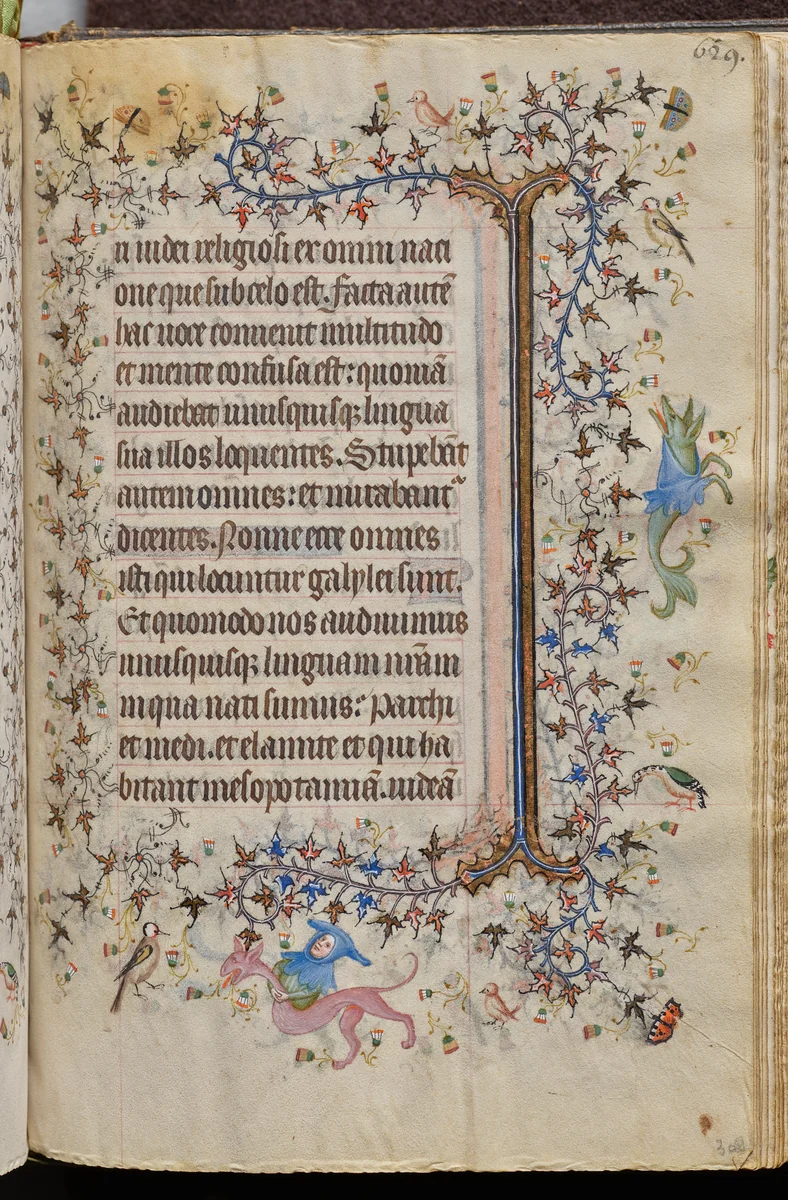 629.
n iudei religiosi ex omni nati
one que sub celo est. Facta autē
hac uoce conuenit multitudo
et mente confusa est: quoniā
audiebat unusquisqꝫ lingua
sua illos loquentes. Stupebāt
autem omnes: et mirabantʳ
dicentes. Nonne ecce omnes
isti qui locuntur galylei sunt.
Et quomodo nos audiuimus
unusquisqꝫ linguam nr̄am
in qua nati sumus: Parthi
et medi. et elamite et qui ha
bitant mesopotamiā. iudeā
308